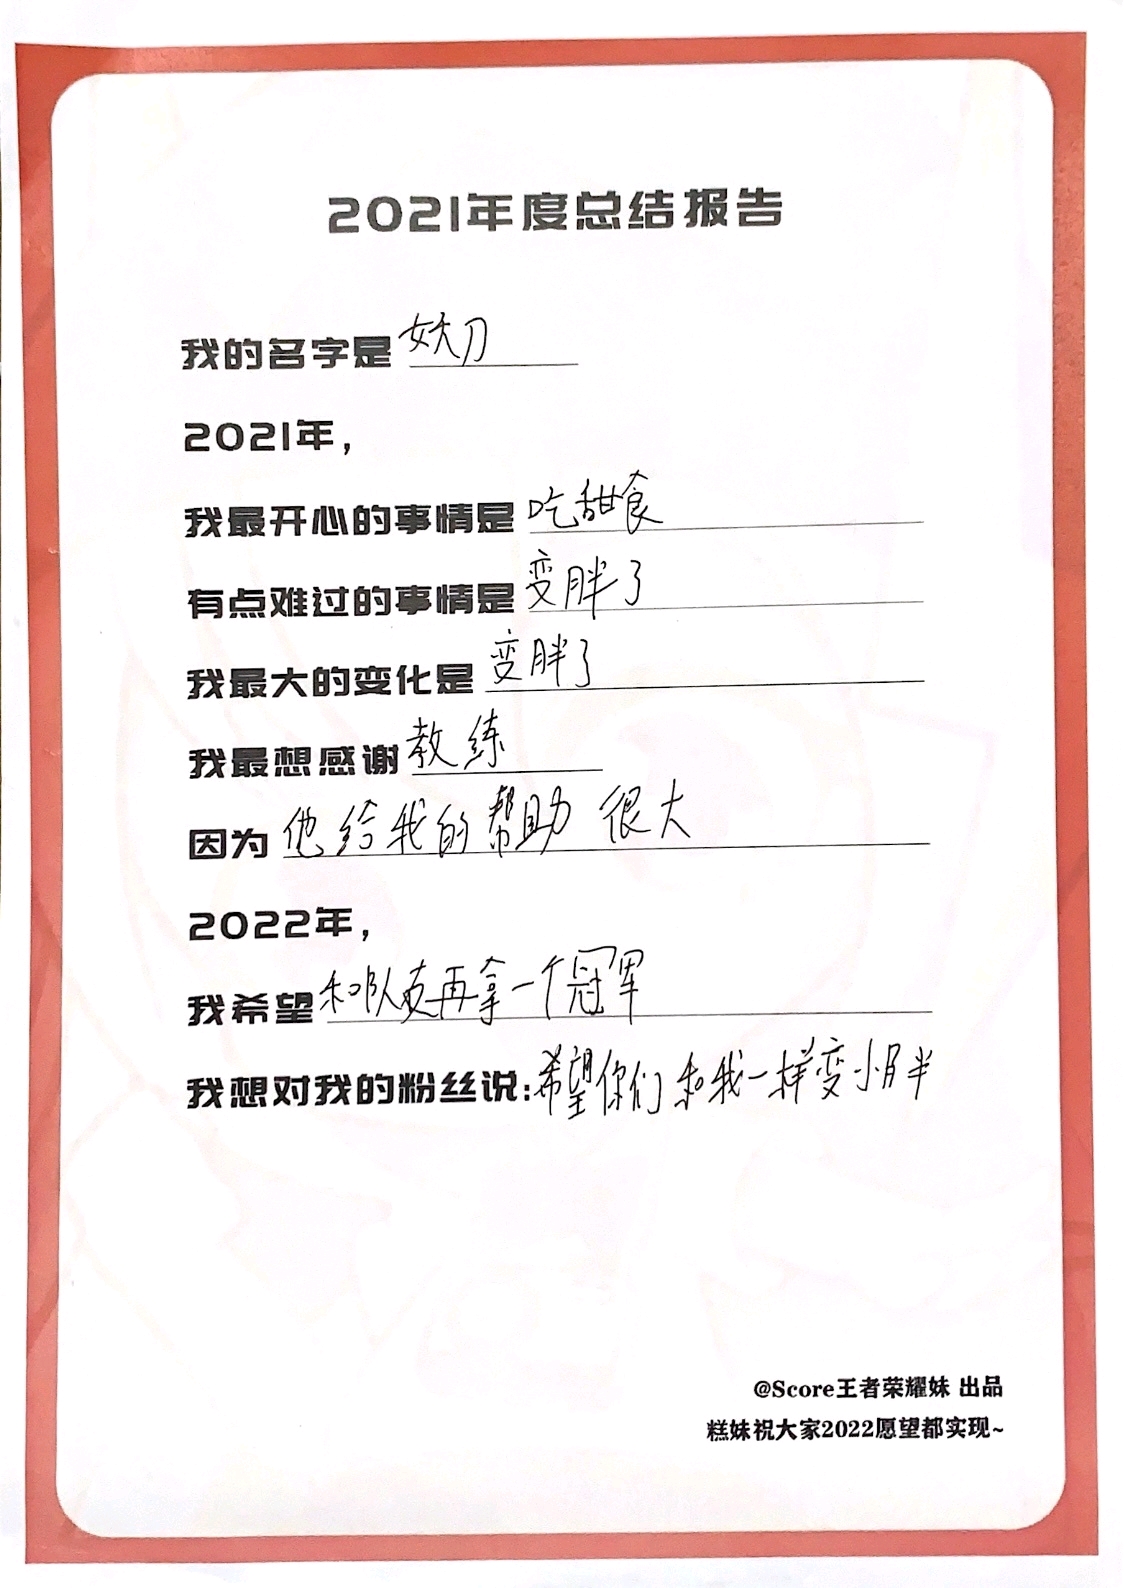 2021年度总结报告
我的名字是 妖刀
2021年，
我最开心的事情是 吃甜食
有点难过的事情是 变胖了
我最大的变化是 变胖了
我最想感谢 教练
因为 他给我的帮助很大
2022年，
我希望 和队友再拿一个冠军
我想对我的粉丝说：希望你们和我一样变小胖
@Score王者荣耀妹 出品
糕妹祝大家2022愿望都实现~